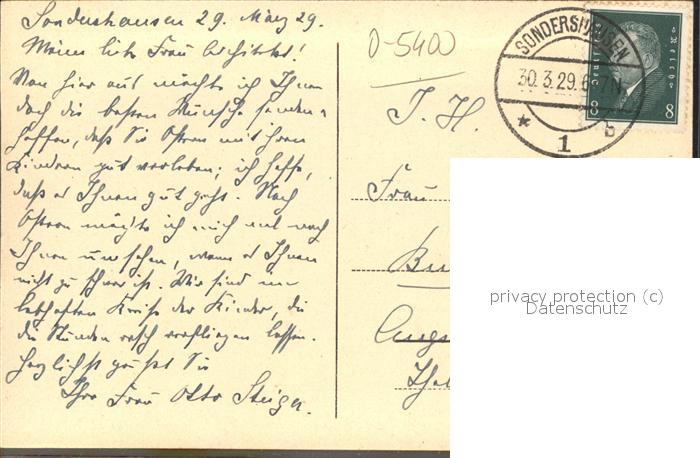 Sondershausen 29. März 29.
Meine liebe Frau
Von hier aus möchte ich Ihnen
doch die besten Wünsche senden,
hoffen, daß Sie Ostern mit Ihren
Kindern gut verleben; ich hoffe,
daß es Ihnen gut geht. Nach
Ostern möchte ich mich mal nach
Ihnen umsehen, wenn es Ihnen
nicht zu schwer ist. Wir sind im
lebhaften Kreise der Kinder, die
die Stunden rasch verfliegen lassen.
Herzlichst grüßt Sie
Ihre Frau Otto Steiger.
D-5400
SONDERSHAUSEN
30.3.29.6-7N
* 1 b
8 8
I. H.
Frau
privacy protection (c)
Datenschutz